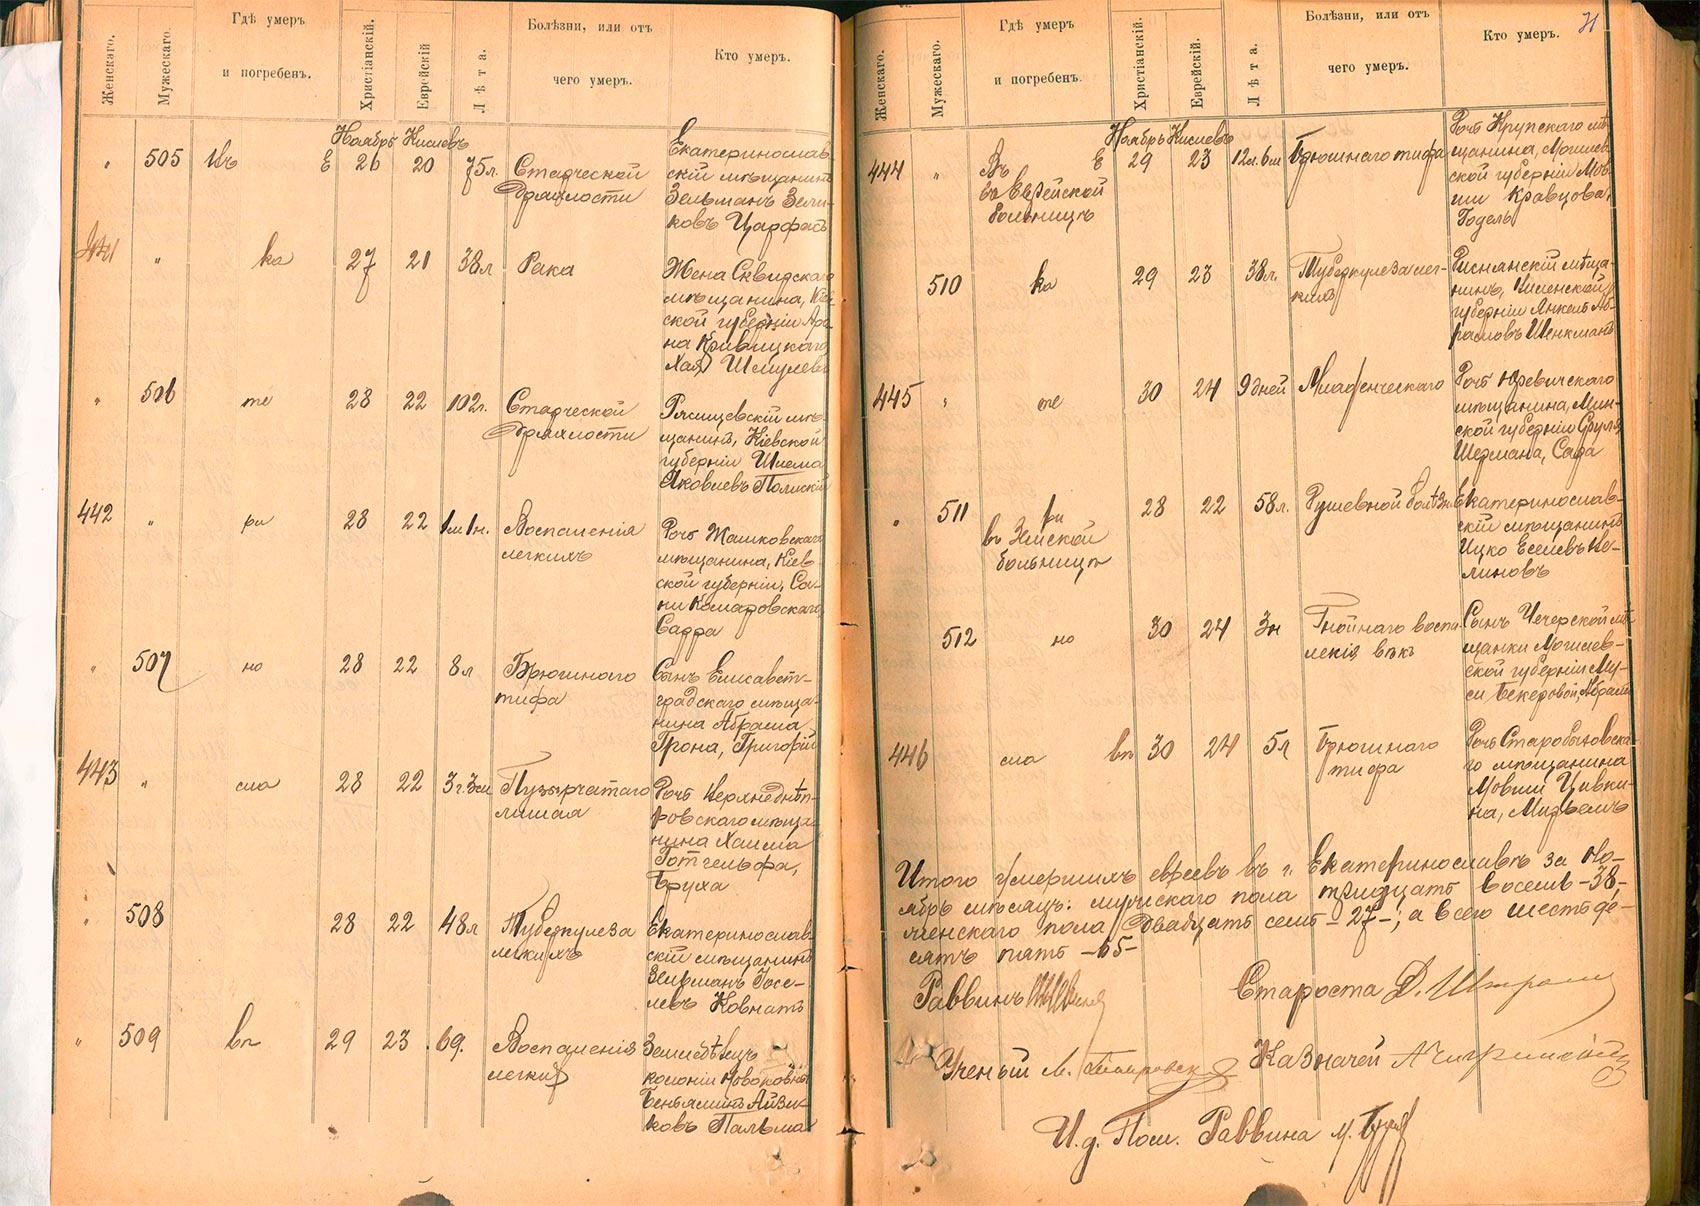 Женскаго.
Мужескаго.
Гдѣ умеръ
и погребенъ.
Христіанскій.
Еврейскій
Лѣта.
Болѣзни, или отъ
чего умеръ.
Кто умеръ.
Ноябрь Кислевъ
" 505 Инъ Е 26 20 75 л. Старческой
дряхлости
Екатеринослав-
скій мѣщанинъ
Зельманъ Зели-
ковъ Царфасъ
441 " ка 27 21 38 л Рака
Жена Сквирскаго
мѣщанина, Кіев
ской губерніи Аро
на Кривицкаго
Хая Шмулева
" 506 те 28 22 102 г. Старческой
дряхлости
мѣ-
щанинъ, Кіевской
губерніи Шлема
Яковлевъ Полискій
442 " ри 28 22 1 м 1 н. Воспаленія
легкихъ
Дочь Жашковскаго
мѣщанина, Кіев
ской губерніи, Са-
ни Комаровскаго,
Сарра
" 507 но 28 22 8 л Брюшного
тифа
Сынъ Елисавет-
градскаго мѣща-
нина Абрама
Грона, Григорій
443 " сла 28 22 3 г. 3 м Пузырчатаго
лишая
Дочь Верхнеднѣп-
ровскаго мѣща-
нина Хаима
Готгельфа,
Бруха
" 508 28 22 48 л Туберкулеза
легкихъ
Екатеринослав-
скій мѣщанинъ
Зельманъ Іосе-
левъ Ковнатъ
" 509 вѣ 29 23 69. Воспаленія
легких
Земледѣлецъ
колоніи
Беньяминъ Айзи-
ковъ Пальма
Женскаго.
Мужескаго.
Гдѣ умеръ
и погребенъ.
Христіанскій.
Еврейскій.
Лѣта.
Болѣзни, или отъ
чего умеръ.
Кто умеръ.
Ноябрь Кислевъ
444 " Въ Е 29 23 12 л. 6 м Брюшнаго тифа
въ Еврейской
больницѣ
Дочь Крупскаго мѣ-
щанина, Могилев
ской губерніи Мов-
ши Кравцова,
Годель
510 ка 29 23 38 л. Туберкулеза лег-
кихъ
мѣща-
нинъ,
губерніи Янкель Аб-
рамовъ Шенкманъ
445 " те 30 24 9 дней
Дочь Юревичскаго
мѣщанина, Мин-
ской губерніи Сруля
Шермана, Сара
" 511 ри 28 22 58 л. Душевной болѣзн
въ Земской
больницѣ
Екатеринослав-
скій мѣщанинъ
Ицко
линовъ
512 но 30 24 3 н Гнойнаго воспа-
ленія вѣкъ
Сынъ Чечерской мѣ
щанки Могилев-
ской губерніи Му-
си Бекеровой, Абрамъ
446 сла вѣ 30 24 5 л Брюшнаго
тифа
Дочь Старобыховска-
го мѣщанина
Мовши Цивки-
на, Мирьемъ
Итого умершихъ евреевъ въ г. Екатеринославѣ за Но-
ябрь мѣсяцъ: мужскаго пола тридцать восемь -38,-
женскаго пола двадцать семь -27-; а всего шестьде-
сятъ пять -65-
Раввинъ
Староста Д. Штром
Ученый М.
Казначей
И. д. Пом. Раввина М.